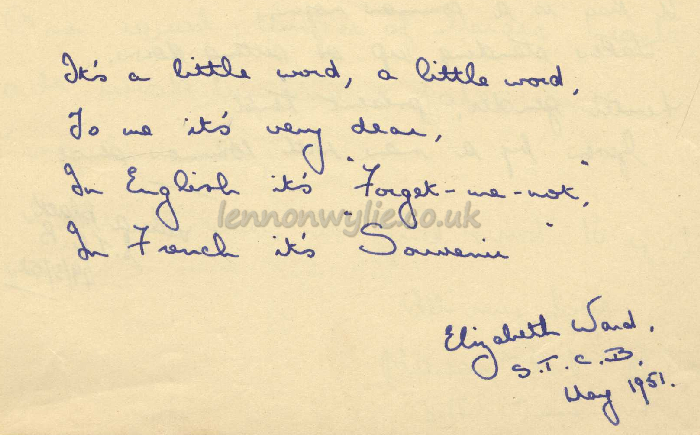 It's a little word, a little word,
To me it's very dear,
In English it's "Forget-me-not,"
lennonwylie.co.uk
In French it's "Souvenir"
Elizabeth Ward.
S.T.C.B.
May 1951.